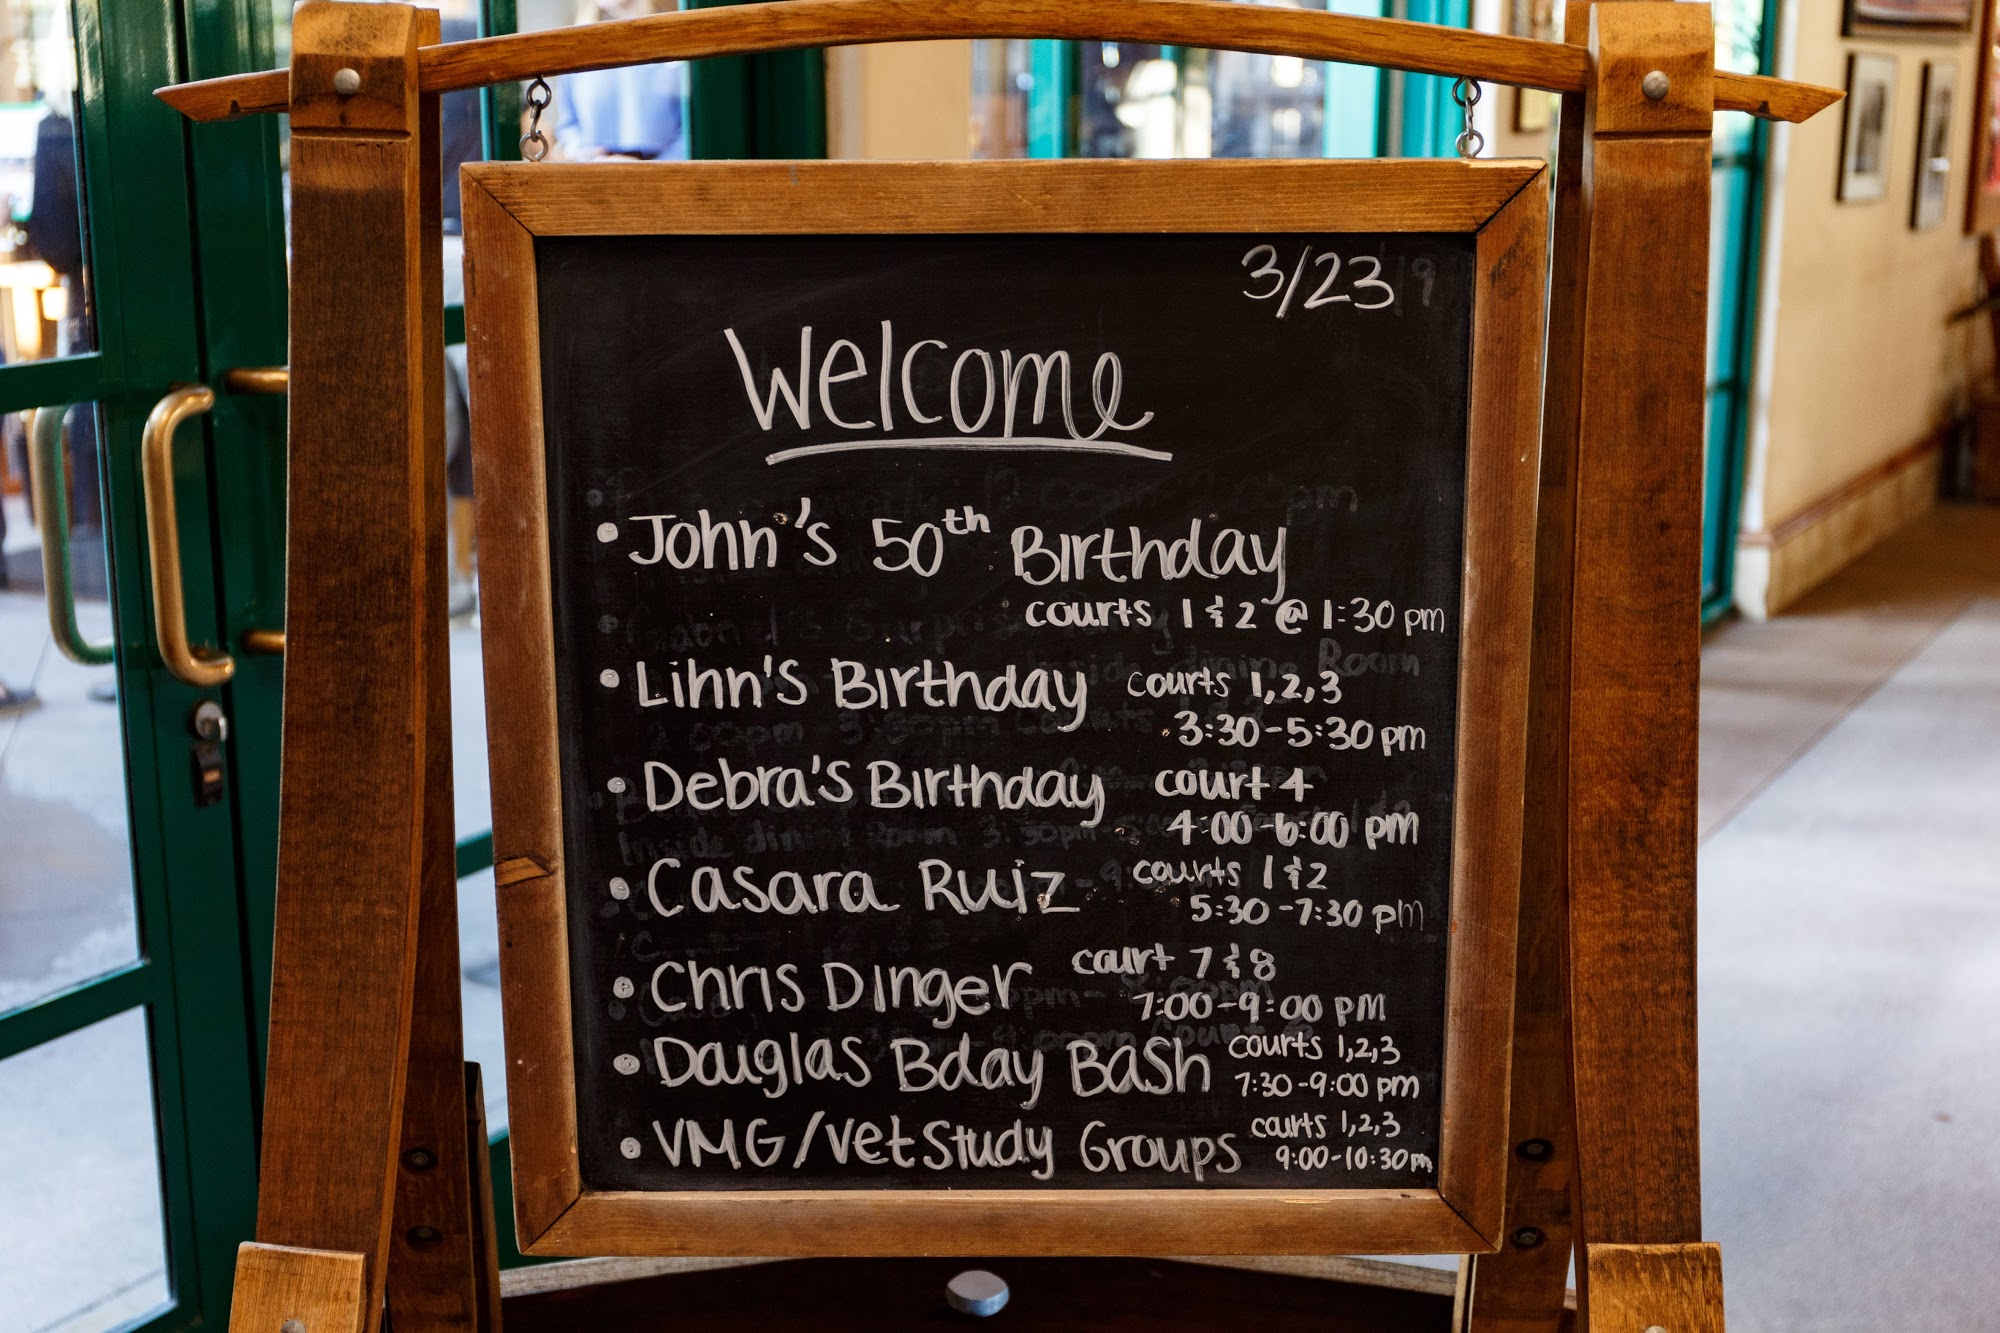 3/23
Welcome
• John's 50th Birthday
courts 1 & 2 @ 1:30 pm
• Lihn's Birthday courts 1,2,3
3:30-5:30 pm
• Debra's Birthday court 4
4:00-6:00 pm
• Casara Ruiz courts 1 & 2
5:30-7:30 pm
• Chris Dinger court 7 & 8
7:00-9:00 PM
• Douglas Bday BaSh courts 1,2,3
7:30-9:00 pm
• VMG/Vet Study Groups courts 1,2,3
9:00-10:30pm